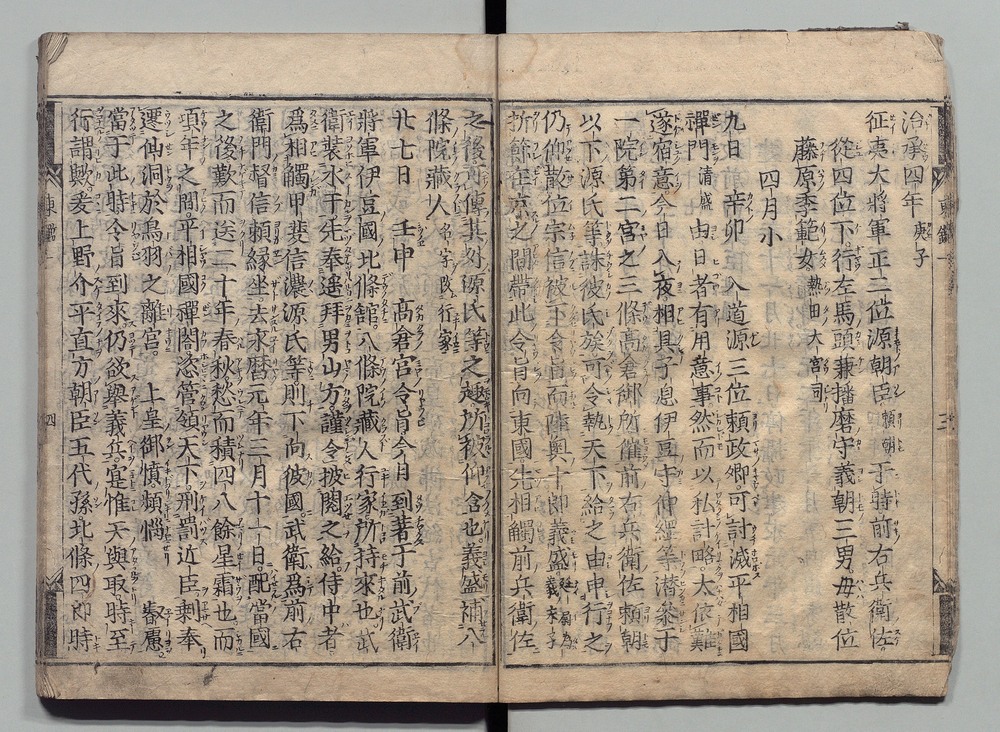 治承四年 庚子
征夷大將軍正二位源朝臣 頼朝 于時前右兵衛佐
從四位下行左馬頭兼播磨守義朝三男母散位
藤原季範女 熱田大宮司
四月小
九日 辛卯 入道源三位頼政卿可討滅平相國
禪門 清盛 由日者有用意事然而以私計略太依難
遂宿意今日入夜相具子息伊豆守仲綱等潜參于
一院第二宮之三條高倉御所催前右兵衛佐頼朝
以下源氏等誅彼氏族可令執天下給之由申行之
仍仰散位宗信被下令旨而陸奥十郎義盛
折節在京之間帶此令旨向東國先相觸前兵衛佐
之後可傳其列源氏等之趣所被仰含也義盛補八
條院藏人 名字改行家
廿七日 壬申 高倉宮令旨今月到著于前武衛
將軍伊豆國北條舘八條院藏人行家所持來也武
衛裝水干先奉遥拜男山方謹令披閲之給侍中者
爲相觸甲斐信濃源氏等則下向彼國武衛爲前右
衛門督信頼縁坐去永暦元年三月十一日配當國
之後歎而送二十年春秋愁而積四八餘星霜也而
項年之間平相國禪閤恣管領天下刑罰近臣剰奉
遷仙洞於鳥羽之離宮 上皇御憤頻惱 叡慮
當于此時令旨到來仍欲擧義兵寔惟天與取時至
行謂歟爰上野介平直方朝臣五代孫北條四郎時
東鑑一 三
東鑑一 四